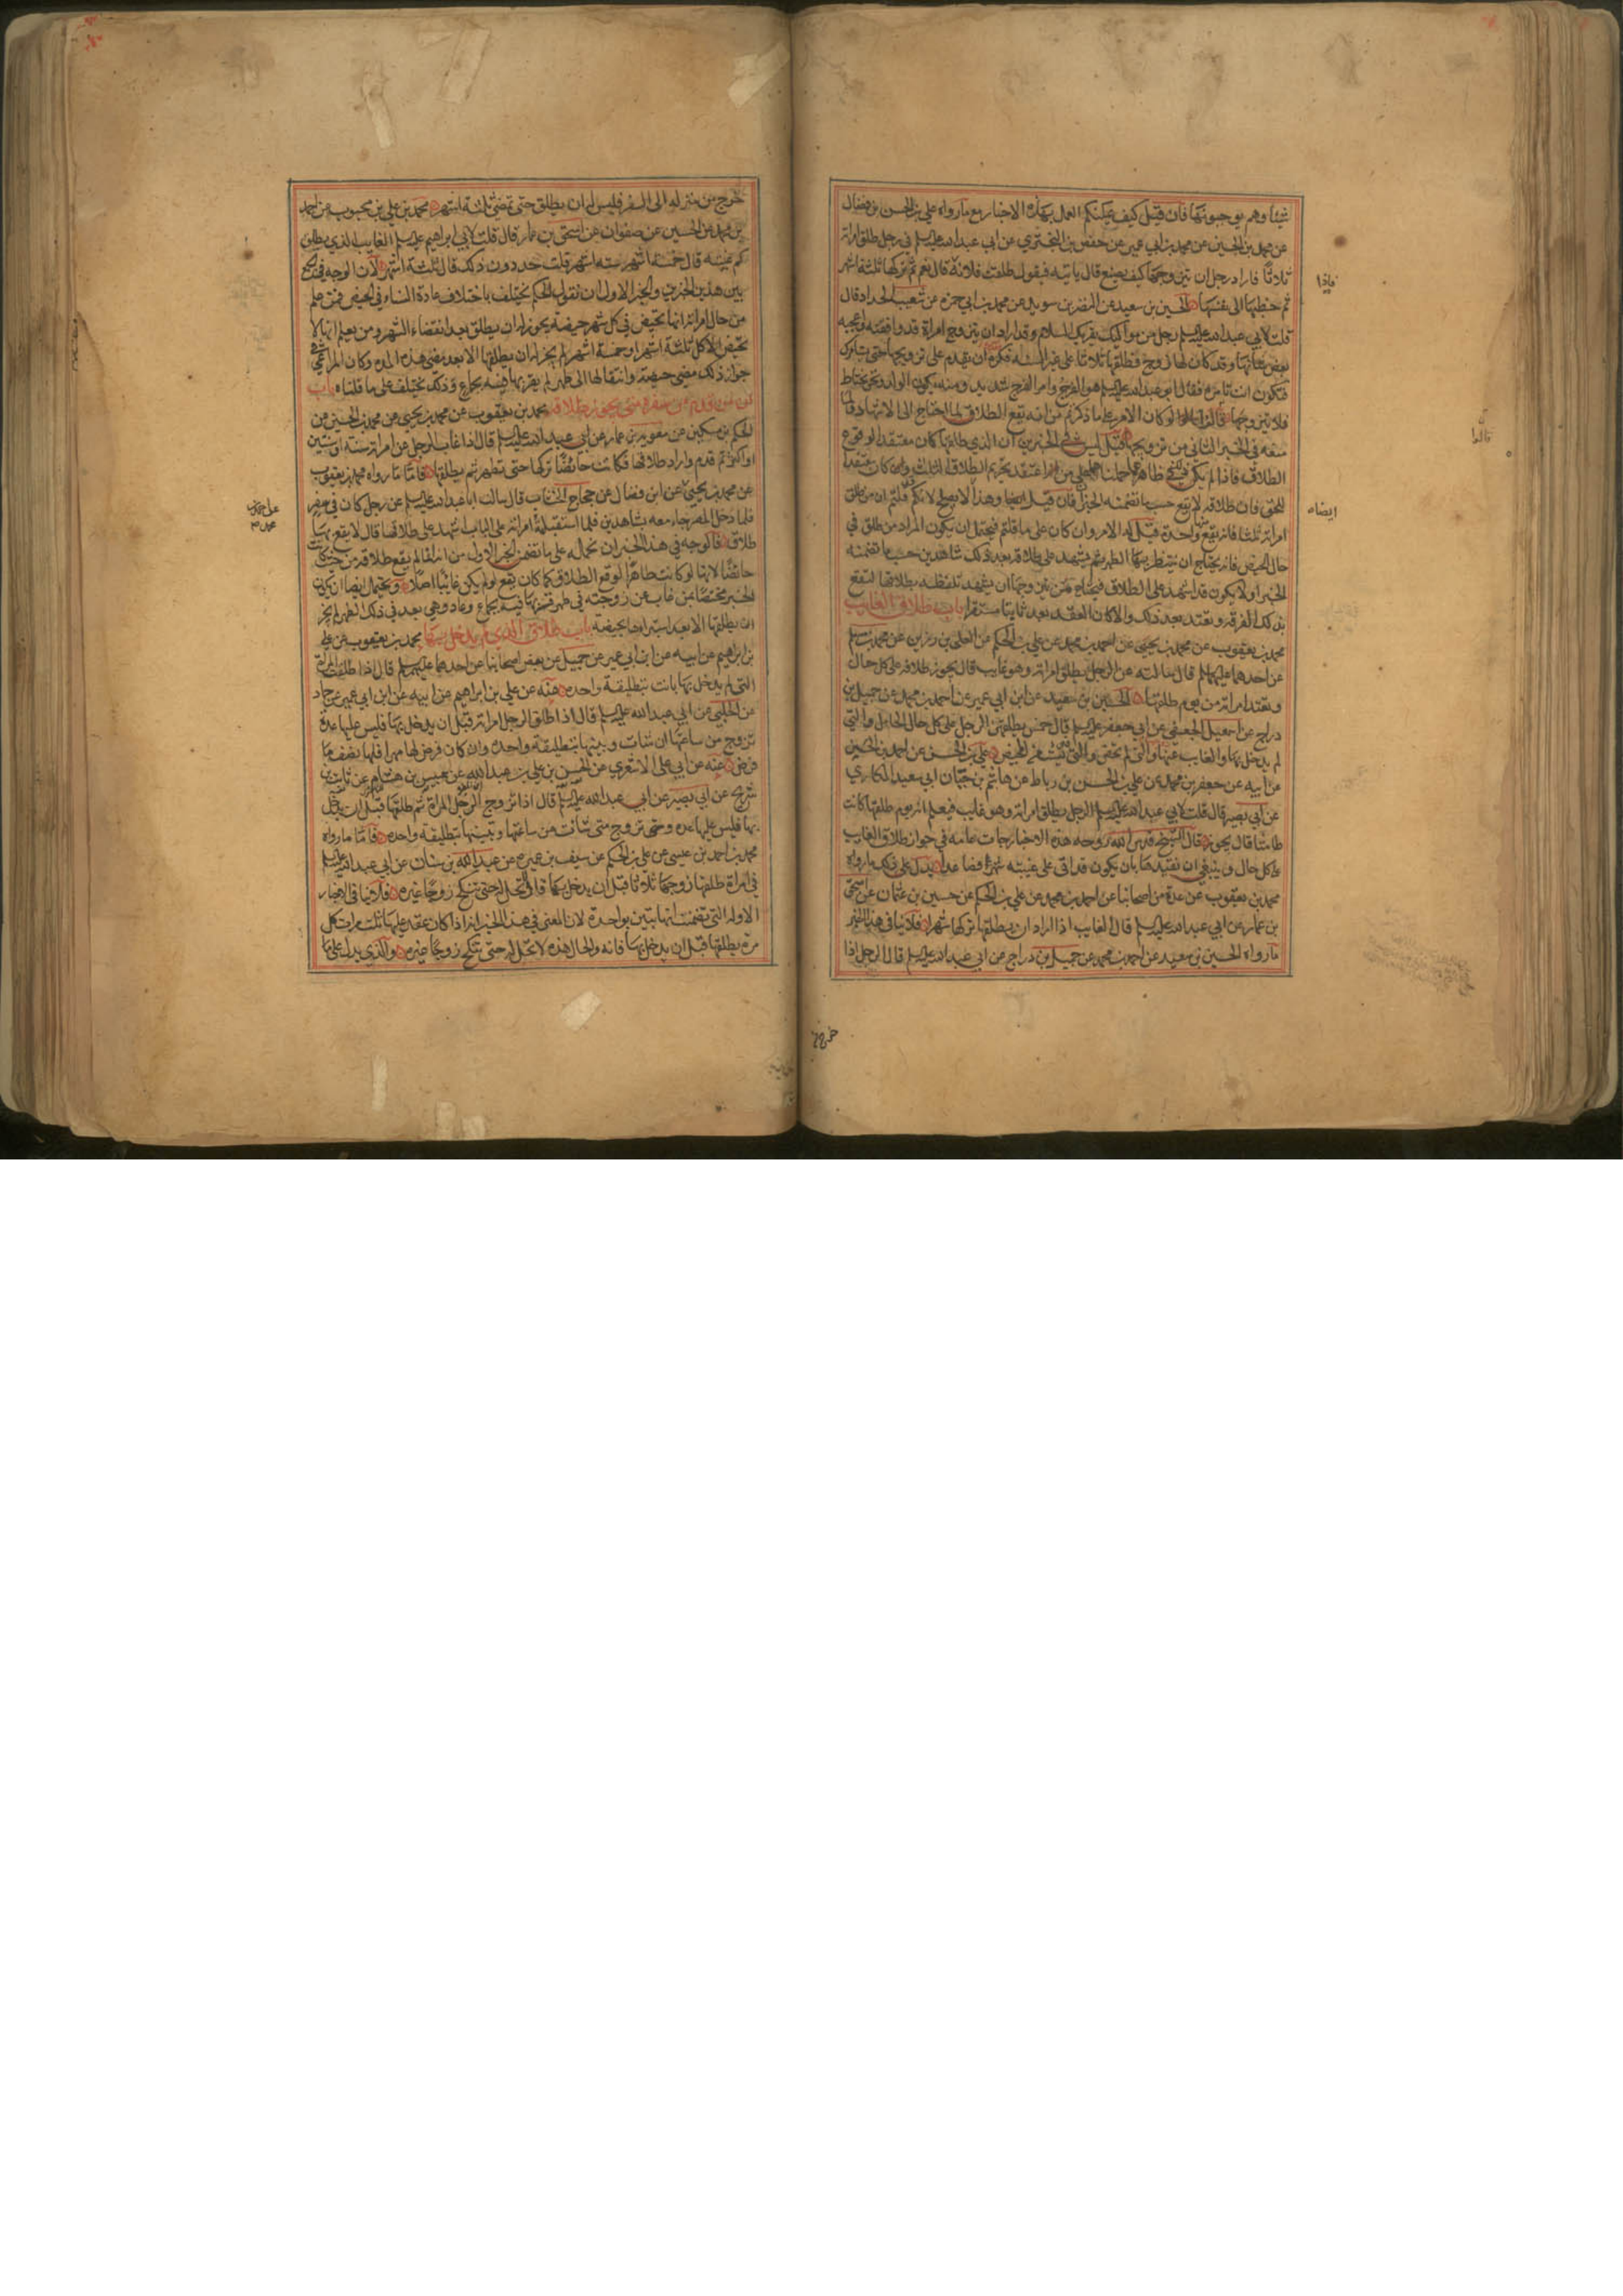 شيئا وهم يوجبونها فان قيل كيف يمكنكم العمل بهذه الاخبار مع ما رواه علي بن الحسن بن فضال
عن محمد بن الحسين عن محمد بن ابي عمير عن حفص بن البختري عن ابي عبد الله عليه السلم في رجل طلق امراته
ثلاثا فاراد رجل ان يتزوجها كيف يصنع قال ياتيه فيقول طلقت فلانة قال نعم ثم تركها ثلثة اشهر
ثم خطبها الى نفسها الحسين بن سعيد عن النضر بن سويد عن محمد بن ابي حمزه عن شعيب الحداد قال
قلت لابي عبد الله عليه السلم رجل من مواليك يقريك السلام وقد اراد ان يتزوج امراة قد وافقته واعجبه
بعض شانها وقد كان لها زوج فطلقها ثلاثا على غير السنه فكره ان يقدم على تزويجها حتى يستامرك
فتكون انت تامره فقال ابو عبد الله عليه السلم هو الفرج وامر الفرج شديد ومنه يكون الولد ونحن نحتاط
فلا يتزوجها قالوا لو كان الامر على ما ذكرتم من انه يقع الطلاق لما احتاج الى
منعه في الخبر الثاني من تزويجها قيل ليس في الخبرين ان الذي طلقها كان معتقد الوقوع
الطلاق فاذا لم يكن في ظاهره حملناهما على من اعتقد تحريم الطلاق الثلث وان كان معتقدا
للحق فان طلاقه لا يقع حسب ما تضمنه الخبر فان قيل ايضا وهذا لا يصح لانكم قلتم ان من طلق
امراته ثلثا فانه يقع منها واحدة قيل له الامر وان كان على ما قلتم فيحتمل ان يكون المراد من طلق في
حال الحيض فانه يحتاج ان ينتظر بها الطهر ثم يشهد على طلاقه بعد ذلك شاهدين حسب ما تضمنه
الخبر اولا يكون قد اشهد على الطلاق فيحتاج من يتزوجها ان يشهد تلفظه بطلاقها لتقع
بذلك الفرقة وتعتد بعد ذلك والا كان العقد بعد ثابتا مستقرا باب طلاق الغايب
محمد بن يعقوب عن محمد بن يحيى عن احمد بن محمد عن علي بن الحكم عن العلاء بن رزين عن محمد بن مسلم
عن احدهما عليهما السلم قال سالته عن الرجل يطلق امراته وهو غايب قال يجوز طلاقه على كل حال
وتعتد امراته من يوم طلقها الحسين بن سعيد عن ابن ابي عمير عن احمد بن محمد عن جميل بن
دراج عن اسمعيل الجعفي عن ابي جعفر عليه السلم قال خمس يطلقهن الرجل على كل حال الحامل والتي
لم يدخل بها والغايب عنها والتي لم تحض والتي يئست من المحيض علي بن الحسن عن احمد بن الحسين
عن ابيه عن جعفر بن محمد عن علي بن الحسن بن رباط عن هاشم بن حيان ابي سعيد المكاري
عن ابي بصير قال قلت لابي عبد الله عليه السلم الرجل يطلق امراته وهو غايب فيعلم انه يوم طلقها كانت
طامثا قال يجوز قال الشيخ قدس الله روحه هذه الاخبار جات عامه في جواز طلاق الغايب
على كل حال وينبغي ان نقيدها بان يكون قد اتى على غيبته شهر فصاعدا يدل على ذلك ما رواه
محمد بن يعقوب عن عدة من اصحابنا عن احمد بن محمد عن علي بن الحكم عن حسين بن عثمان عن اسحق
بن عمار عن ابي عبد الله عليه السلم قال الغايب اذا اراد ان يطلقها تركها شهرا فلا ينافي هذا الخبر
ما رواه الحسين بن سعيد عن احمد بن محمد عن جميل بن دراج عن ابي عبد الله عليه السلم قال الرجل اذا
ايضاه
قالوا
خرج
خرج من منزله الى السفر فليس له ان يطلق حتى تمضي ثلثة اشهر محمد بن علي بن محبوب عن احمد
بن محمد عن الحسين عن صفوان عن اسحق بن عمار قال قلت لابي ابراهيم عليه السلم الغايب الذي يطلق
كم غيبته قال خمسه اشهر سته اشهر قلت حد دون ذلك قال ثلثة اشهر لان الوجه في الجمع
بين هذين الخبرين والخبر الاول ان نقول الحكم يختلف باختلاف عادة النساء في الحيض فمن علم
من حال امراته انها تحيض في كل شهر حيضه يجوز له ان يطلق بعد انقضاء الشهر ومن يعلم انها لا
تحيض الا كل ثلثة اشهر او خمسة اشهر لم يجز له ان يطلقها الا بعد مضي هذه المده وكان المراعي في
جواز ذلك مضي حيضة وانتقالها الى طهر لم يقربها فيه بجماع وذلك يختلف على ما قلناه باب
من قدم من سفره متى يجوز طلاقه محمد بن يعقوب عن محمد بن يحيى عن محمد بن الحسين عن
الحكم بن مسكين عن معوية بن عمار عن ابي عبد الله عليه السلم قال اذا غاب الرجل عن امراته سنة او سنتين
او اكثر ثم قدم واراد طلاقها فكانت حائضا تركها حتى تطهر ثم يطلقها فاما ما رواه محمد بن يعقوب
عن محمد بن يحيى عن ابن فضال عن حجاج الخشاب قال سالت ابا عبد الله عليه السلم عن رجل كان في سفر
فلما دخل المصر جاء معه بشاهدين فلما استقبلته امراته على الباب اشهد على طلاقها قال لا يقع بها
طلاق فالوجه في هذا الخبر ان نحمله على ما تضمن الخبر الاول من انه انما لم يقع طلاقه من حيث كانت
حائضا لانها لو كانت طاهرا لوقع الطلاق كما كان يقع لو لم يكن غائبا اصلا ويحتمل ايضا ان يكون
الخبر مختصا بمن غاب عن زوجته في طهر قربها فيه بجماع وعاد وهي بعد في ذلك الطهر لم يجز
ان يطلقها الا بعد استبرائها بحيضه باب طلاق الذي لم يدخل بها محمد بن يعقوب عن علي
بن ابراهيم عن ابيه عن ابن ابي عمير عن جميل عن بعض اصحابنا عن احدهما عليهما السلم قال اذا طلقت المراة
التي لم يدخل بها بانت بتطليقة واحده عنه عن علي بن ابراهيم عن ابيه عن ابن ابي عمير عن حماد
عن الحلبي عن ابي عبد الله عليه السلم قال اذا طلق الرجل امراته قبل ان يدخل بها فليس عليها عدة
تزوج من ساعتها ان شات ويبينها بتطليقة واحده وان كان فرض لها مهرا فلها نصف ما
فرض عنه عن ابي علي الاشعري عن الحسن بن علي بن عبد الله عن عبيس بن هشام عن ثابت بن
شريح عن ابي بصير عن ابي عبد الله عليه السلم قال اذا تزوج الرجل المراة ثم طلقها قبل ان يدخل
بها فليس عليها عده وتتزوج متى شائت من ساعتها وتبينها تطليقة واحده فاما ما رواه
محمد بن احمد بن عيسى عن علي بن الحكم عن سيف بن عميره عن عبد الله بن سنان عن ابي عبد الله عليه السلم
في امراة طلقها زوجها ثلاثا قبل ان يدخل بها قال لا تحل له حتى تنكح زوجا غيره فلا ينافي الاخبار
الاوله التي تضمنت انها تبين بواحدة لان المعنى في هذا الخبر انه اذا كان عقد عليها ثلث مرات كل
مرة يطلقها قبل ان يدخل بها فانه والحال هذه لا تحل له حتى تنكح زوجا غيره والذي يدل على ما